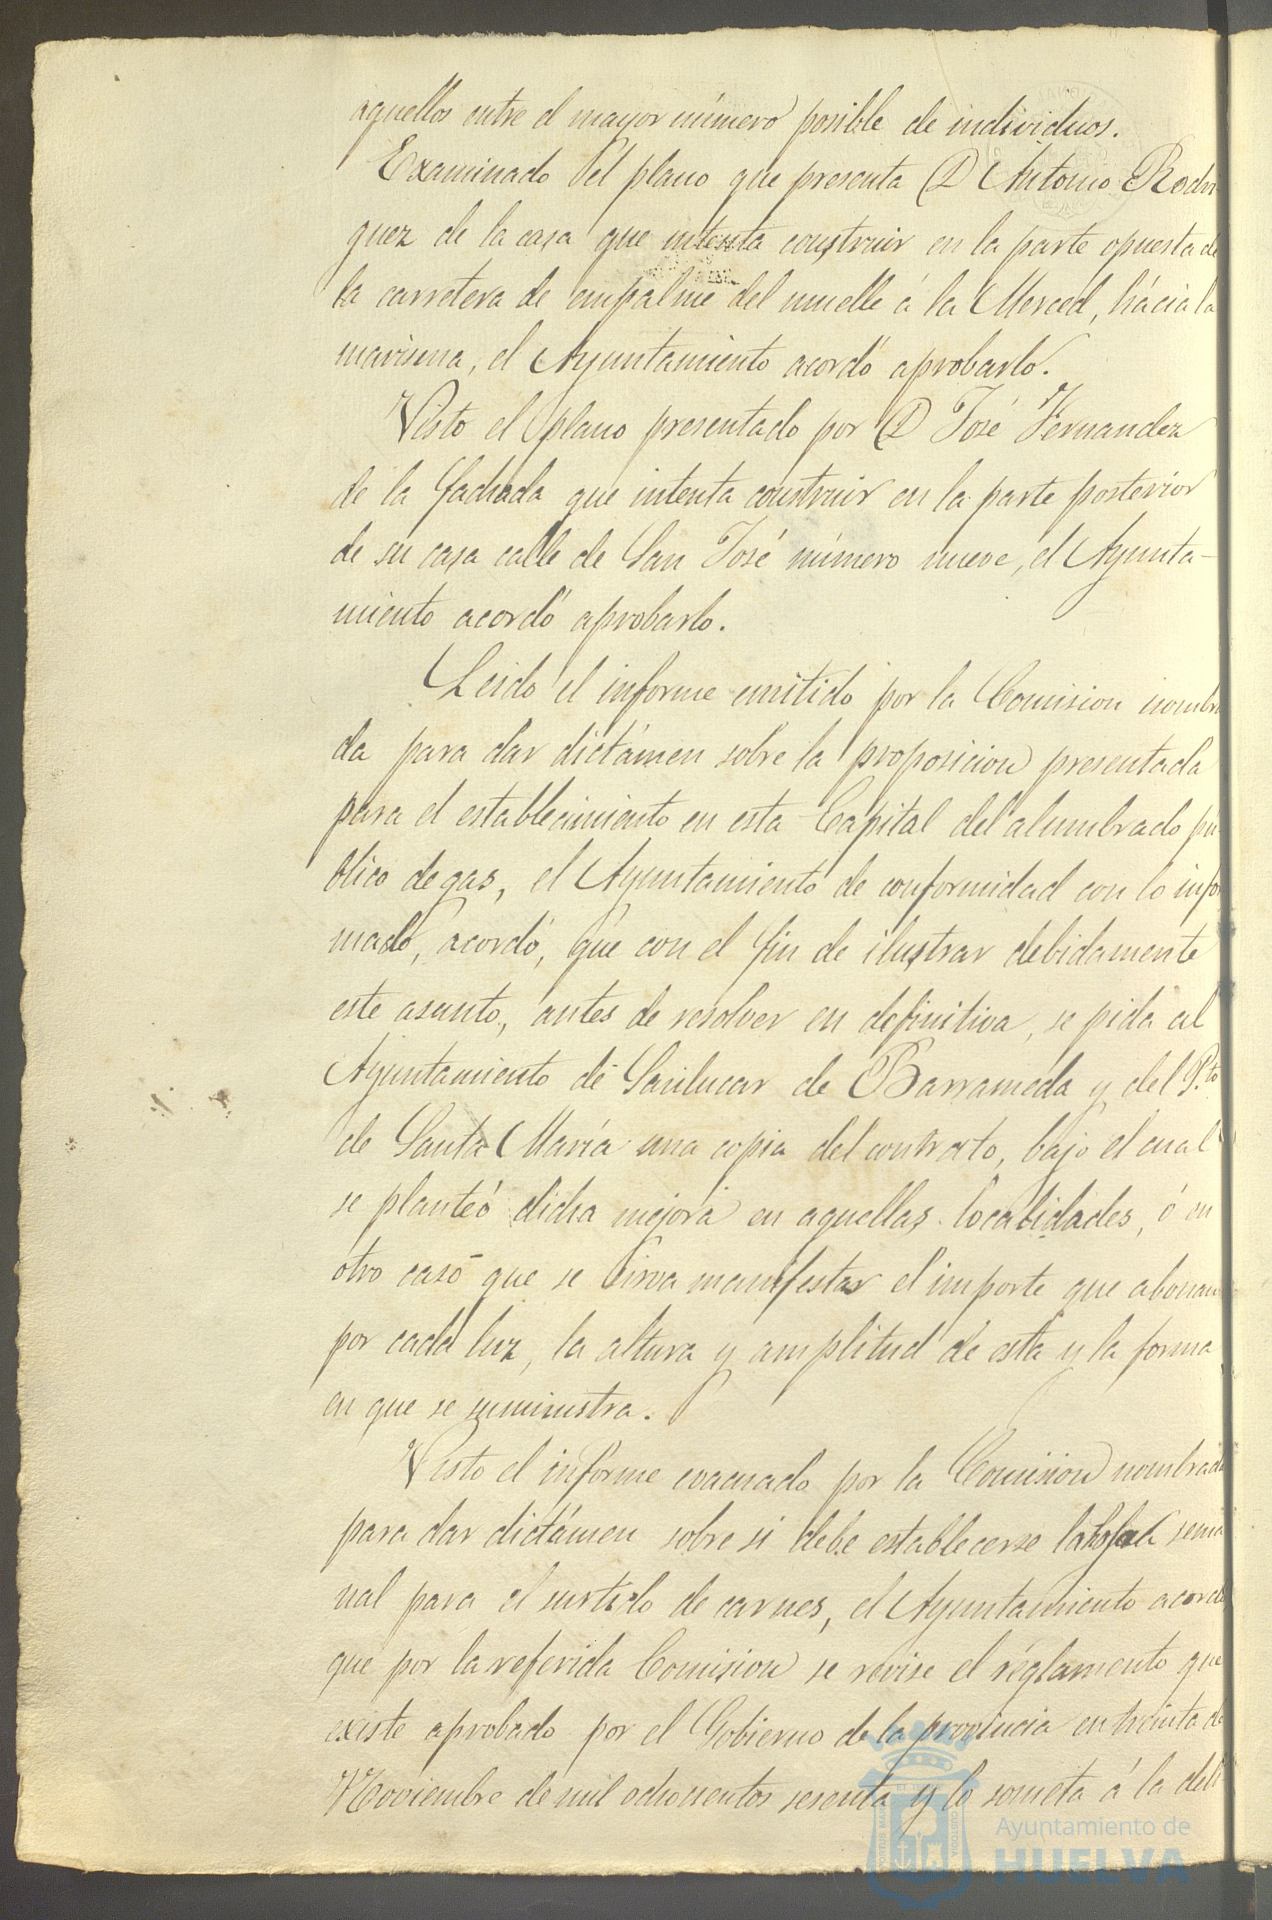 aquellos entre el mayor número posible de individuos.
Examinado el plano que presenta D Antonio Rodri
guez de la casa que intenta construir en la parte opuesta de
la carretera de empalme del muelle á la Merced, hácia la
marisma, el Ayuntamiento acordó aprobarlo.
Visto el plano presentado por D José Fernandez
de la fachada que intenta construir en la parte posterior
de su casa calle de San José número nueve, el Ayunta-
miento acordó aprobarlo.
Leido el informe emitido por la Comision nombra
da para dar dictámen sobre la proposicion presentada
para el establecimiento en esta Capital del alumbrado pú
blico de gas, el Ayuntamiento de conformidad con lo infor
mado, acordó, que con el fin de ilustrar debidamente
este asunto, antes de resolver en definitiva, se pida al
Ayuntamiento de Sanlucar de Barrameda y del P.to
de Santa María una copia del contrato, bajo el cual
se planteó dicha mejora en aquellas localidades, ó en
otro caso que se sirva manifestar el importe que abonan
por cada luz, la altura y amplitud de esta y la forma
en que se suministra.
Visto el informe evacuado por la Comision nombrada
para dar dictámen sobre si debe establecerse la tabla sema
nal para el surtido de carnes, el Ayuntamiento acordó
que por la referida Comision se revise el réglamento que
existe aprobado por el Gobierno de la provincia en treinta de
Noviembre de mil ochocientos sesenta y lo someta á la deli
Ayuntamiento de
HUELVA